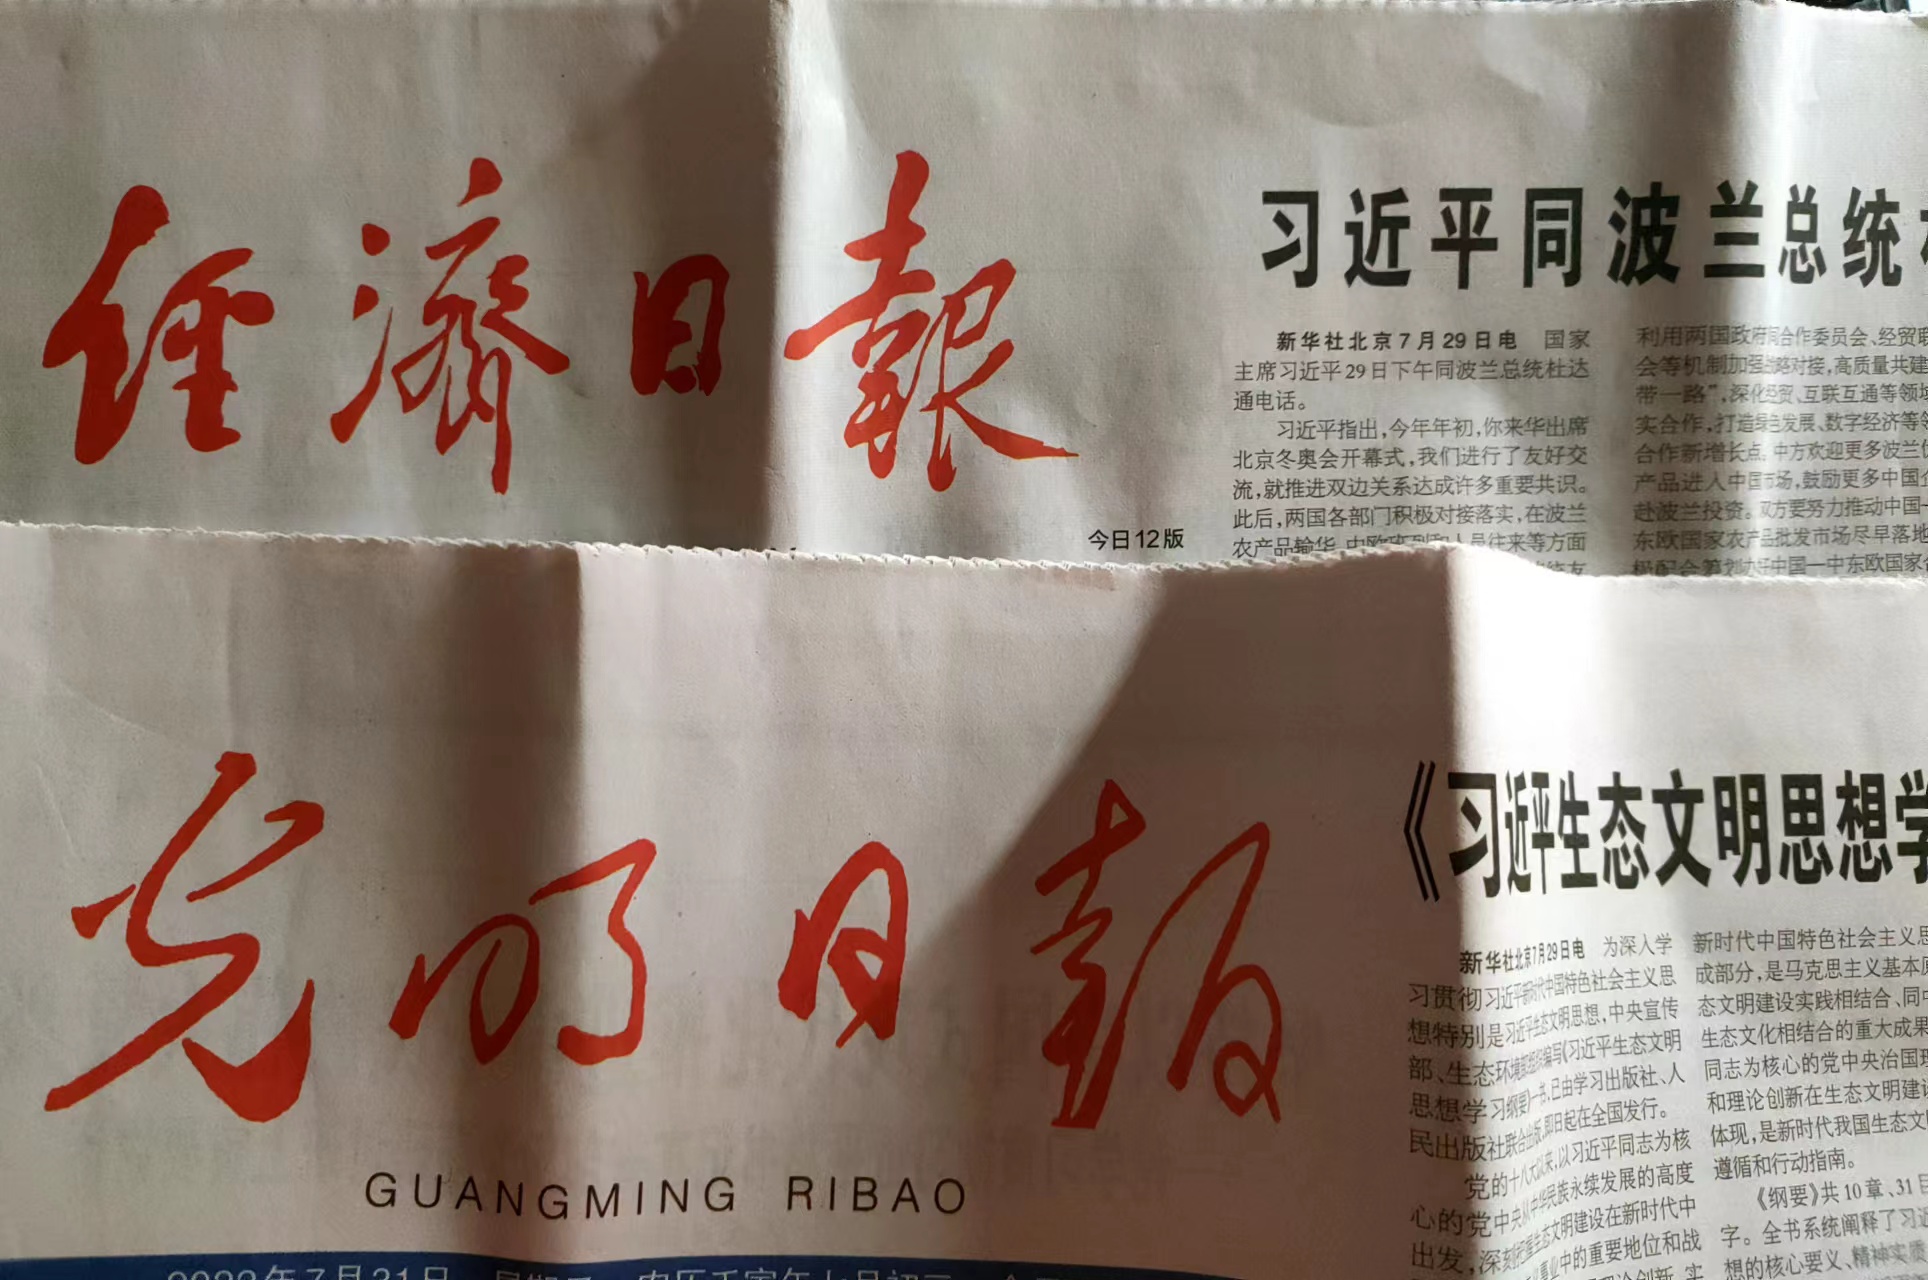 經濟日報
今日12版
习近平同波兰总统
新华社北京7月29日电 国家
主席习近平29日下午同波兰总统杜达
通电话。
习近平指出，今年年初，你来华出席
北京冬奥会开幕式，我们进行了友好交
流，就推进双边关系达成许多重要共识。
此后，两国各部门积极对接落实，在波兰
农产品输华、中欧班列和人员往来等方面
利用两国政府间合作委员会、经贸联
会等机制加强战略对接，高质量共建
带一路”，深化经贸、互联互通等领域
实合作，打造绿色发展、数字经济等领
合作新增长点。中方欢迎更多波兰优
产品进入中国市场，鼓励更多中国企
赴波兰投资。双方要努力推动中国—
东欧国家农产品批发市场尽早落地
极配合筹划办好中国—中东欧国家合
光明日报
GUANGMING RIBAO
《习近平生态文明思想学
新华社北京7月29日电 为深入学
习贯彻习近平新时代中国特色社会主义思
想特别是习近平生态文明思想，中央宣传
部、生态环境部组织编写《习近平生态文明
思想学习纲要》一书，已由学习出版社、人
民出版社联合出版，即日起在全国发行。
党的十八大以来，以习近平同志为核
心的党中央从中华民族永续发展的高度
出发，深刻把握生态文明建设在新时代中
事业中的重要地位和战
新时代中国特色社会主义思
成部分，是马克思主义基本原
态文明建设实践相结合、同中
生态文化相结合的重大成果
同志为核心的党中央治国理
和理论创新在生态文明建设
体现，是新时代我国生态文
遵循和行动指南。
《纲要》共10章、31目
字。全书系统阐释了习近
想的核心要义、精神实质